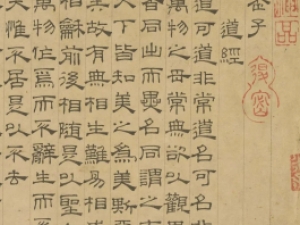 子
道經
道可道非常道名可名非
萬物之母常無欲以觀
者同出而異名同謂之
下皆知美之為美斯
故有無相生難易相
龢前後相隨是以聖
萬物作焉而不辭生而
夫惟不居是以不去